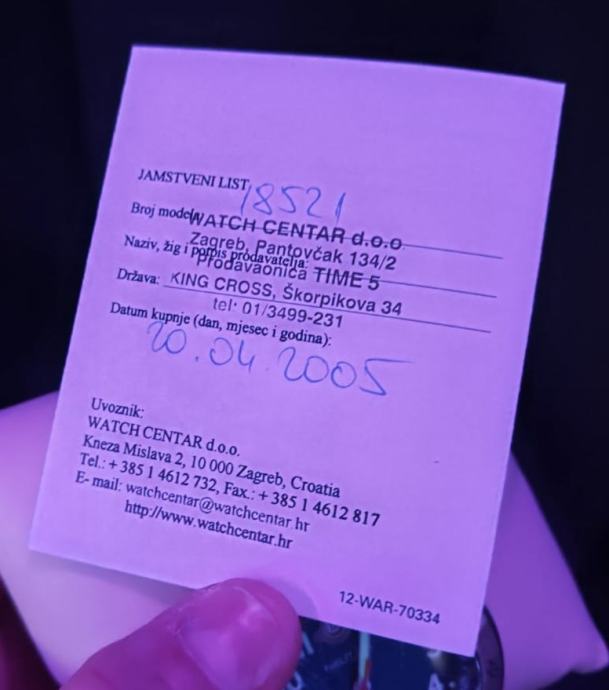 JAMSTVENI LIST
18521
Broj modela
WATCH CENTAR d.o.o.
Zagreb, Pantovčak 134/2
Naziv, žig i potpis prodavatelja:
Prodavaonica TIME 5
Država: KING CROSS, Škorpikova 34
tel: 01/3499-231
Datum kupnje (dan, mjesec i godina):
20.04.2005
Uvoznik:
WATCH CENTAR d.o.o.
Kneza Mislava 2, 10 000 Zagreb, Croatia
Tel.: + 385 1 4612 732, Fax.: + 385 1 4612 817
E- mail: watchcentar@watchcentar.hr
http://www.watchcentar.hr
12-WAR-70334